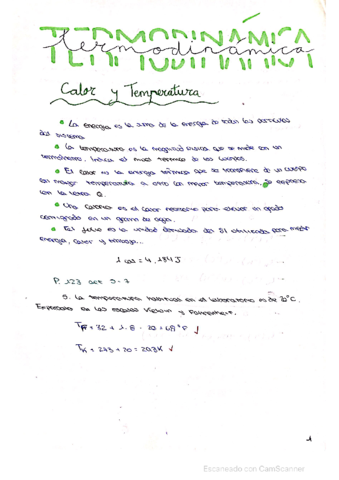 TERMODINÁMICA
termodinámica
Calor y Temperatura
• La energía es la suma de la energía de todas las partículas
del sistema
• La temperatura es la magnitud física que se mide con un
termómetro. Indica el nivel térmico de los cuerpos.
• El calor es la energía térmica que se transfiere de un cuerpo
con mayor temperatura a otro con menor temperatura, se expresa
con la letra Q.
• Una caloría es el calor necesario para elevar un grado
centígrado en un gramo de agua.
• El julio es la unidad derivada del SI utilizada para medir
energía, calor y trabajo...
1 cal = 4,184 J
P. 123 act 5-7
5. La temperatura habitual en el laboratorio es de 20°C.
Exprésalo en las escalas Kelvin y Fahrenheit.
TF = 32 + 1.8 · 20 = 68°F ✓
TK = 273 + 20 = 293K ✓
1
Escaneado con CamScanner